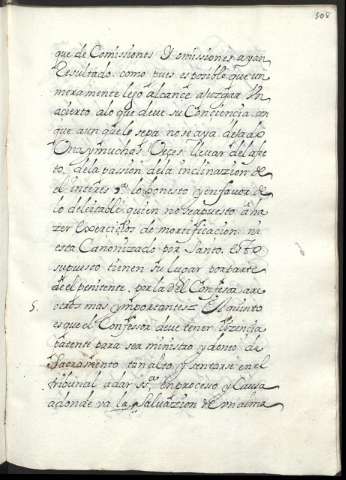 508
que de Comisiones Y omisiones ayan
Resultado. como pues es posible que un
meramente lego alcance a juzgar Un
acierto. a lo que deve su Conciencia, aun
que aun que lo sepa no se aya dejado
Una y muchas Veces, llevar del afec
to, de la passion, de la inclinazion de
el interes y en favor de
lo deleitable quien no se a puesto a ha
zer exercicios de mortificacion ni
esta Canonizado por Santo. esto
supuesto tienen su lugar por parte
de el penitente, por la del Confesor ai
otros mas ymportantes
5. El quinto
es que el Confesor deve tener Licencia
patente para ser ministro ydoneo de
Sacramento tan alto, y sentarse en el
tribunal a dar en proceso y Causa
adonde va la Salvazion de un alma